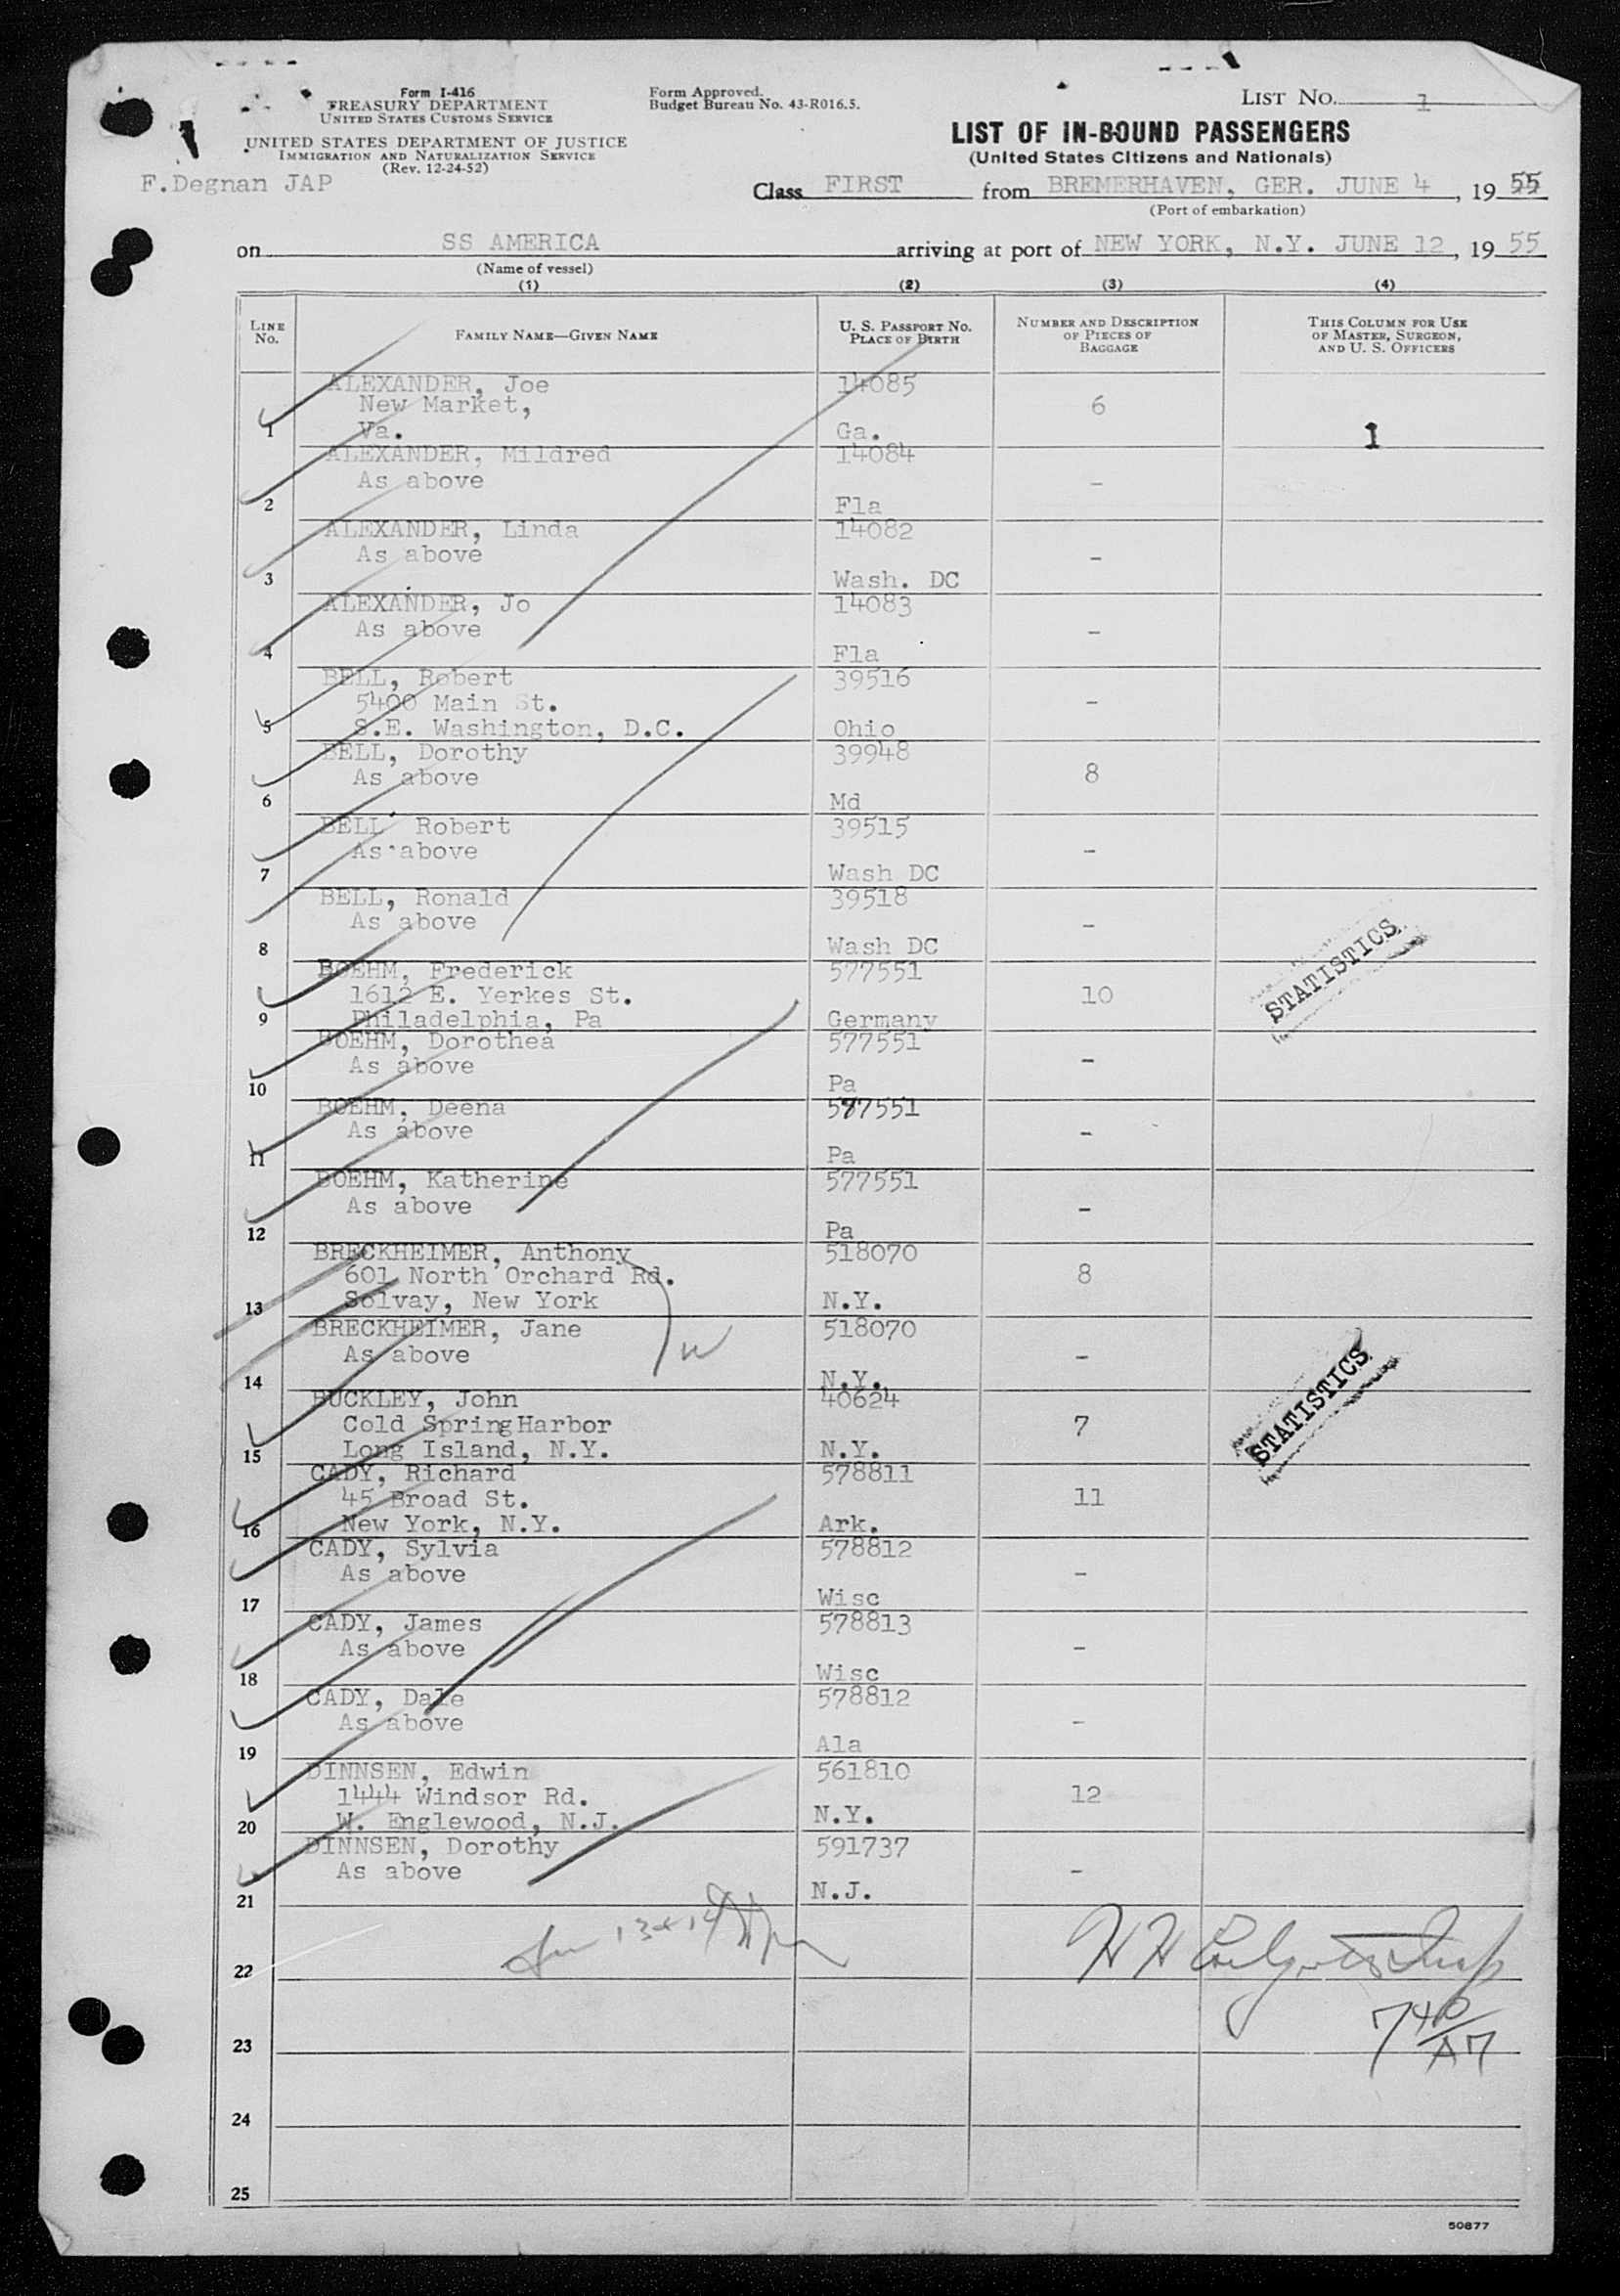 Form I-416
TREASURY DEPARTMENT
UNITED STATES CUSTOMS SERVICE
UNITED STATES DEPARTMENT OF JUSTICE
IMMIGRATION AND NATURALIZATION SERVICE
(Rev. 12-24-52)
Form Approved.
Budget Bureau No. 43-R016.5.
LIST NO. 1
LIST OF IN-BOUND PASSENGERS
(United States Citizens and Nationals)
F.Degnan JAP
Class FIRST from BREMERHAVEN, GER. JUNE 4, 1955
(Port of embarkation)
on SS AMERICA arriving at port of NEW YORK, N.Y. JUNE 12, 1955
(Name of vessel)
(1) (2) (3) (4)
LINE No. FAMILY NAME—GIVEN NAME U. S. PASSPORT NO. PLACE OF BIRTH NUMBER AND DESCRIPTION OF PIECES OF BAGGAGE THIS COLUMN FOR USE OF MASTER, SURGEON, AND U. S. OFFICERS
ALEXANDER, Joe 14085
New Market, 6
1 Va. Ga. 1
ALEXANDER, Mildred 14084
As above -
2 Fla
ALEXANDER, Linda 14082
As above -
3 Wash. DC
ALEXANDER, Jo 14083
As above -
4 Fla
BELL, Robert 39516
5400 Main St. -
5 S.E. Washington, D.C. Ohio
BELL, Dorothy 39948
As above 8
6 Md
BELL, Robert 39515
As above -
7 Wash DC
BELL, Ronald 39518
As above -
8 Wash DC
BOEHM, Frederick 577551
1612 E. Yerkes St. 10
9 Philadelphia, Pa Germany
STATISTICS
BOEHM, Dorothea 577551
As above -
10 Pa
BOEHM, Deena 577551
As above -
11 Pa
BOEHM, Katherine 577551
As above -
12 Pa
BRECKHEIMER, Anthony 518070
601 North Orchard Rd. 8
13 Solvay, New York N.Y.
BRECKHEIMER, Jane 518070
As above - W
14 N.Y.
BUCKLEY, John 40624
Cold Spring Harbor 7
15 Long Island, N.Y. N.Y.
STATISTICS
CADY, Richard 578811
45 Broad St. 11
16 New York, N.Y. Ark.
CADY, Sylvia 578812
As above -
17 Wisc
CADY, James 578813
As above -
18 Wisc
CADY, Dale 578812
As above -
19 Ala
DINNSEN, Edwin 561810
1444 Windsor Rd. 12
20 W. Englewood, N.J. N.Y.
DINNSEN, Dorothy 591737
As above -
21 N.J.
13 + 14
22
23
24
25
50877